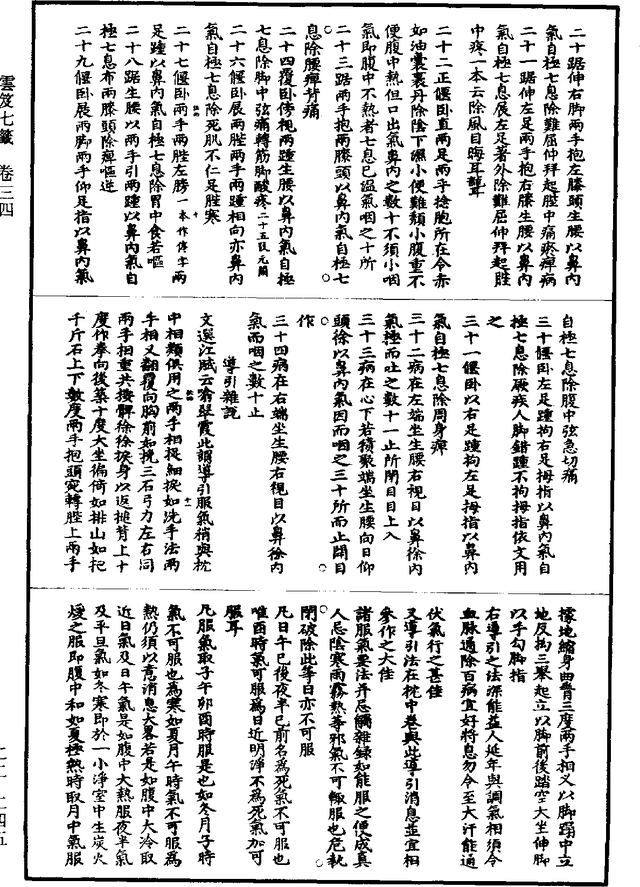 雲笈七籤 卷三四
二十踞伸右脚兩手抱左膝頭生腰以鼻內
氣自極七息除難屈伸拜起脛中痛瘀痹病
二十一踞伸左足兩手抱右膝生腰以鼻內
氣自極七息展左足著外除難屈伸拜起脛
中疼一本云除風目晦耳聾
二十二正偃卧直兩足兩手捻胞所在令赤
如油囊裹丹除陰下濕小便難頹小腹重不
便腹中熱但口出氣鼻內之數十不須小咽
氣即腹中不熱者七息已溫氣咽之十所
二十三踞兩手抱兩膝頭以鼻內氣自極七
息除腰痹背痛
二十四覆卧傍視兩踵生腰以鼻內氣自極
七息除脚中弦痛轉筋脚酸疼二十五段元闕
二十六偃卧展兩脛兩手兩踵相向亦鼻內
氣自極七息除死肌不仁足脛寒
二十七偃卧兩手兩脛左膀一本作傍字兩
足踵以鼻內氣自極七息除胃中食若嘔
二十八踞生腰以兩手引兩踵以鼻內氣自
極七息布兩膝頭除痹嘔逆
二十九偃卧展兩脚兩手仰足指以鼻內氣
自極七息除腹中弦急切痛
三十偃卧左足踵拘右足拇指以鼻內氣自
極七息除厥疾人脚錯踵不拘拇指依文用
之
三十一偃卧以右足踵拘左足拇指以鼻內
氣自極七息除周身痹
三十二病在左端坐生腰右視目以鼻徐內
氣極而吐之數十一止所閉目目上入
三十三病在心下若積聚端坐生腰向日仰
頭徐以鼻內氣因而咽之三十所而止開目
作
三十四病在右端坐生腰右視目以鼻徐內
氣而咽之數十止
導引雜說
文選江賦云翁翠霞此謂導引服氣稍與枕
中相類俱用之兩手相捉細捩如洗手法兩
手相叉翻覆向胸前如挽三石弓力左右同
兩手相重共按髀徐徐捩身以返搥背上十
度作拳向後築十度大坐偏倚如排山如把
千斤石上下數度兩手抱頭宛轉脛上兩手
據地縮身曲脊三度兩手相叉以脚蹋中立
地反拗三舉起立以脚前後踏空大坐伸脚
以手勾脚指
右導引之法深能益人延年與調氣相須令
血脉通除百病宜好將息勿令至大汗能通
伏氣行之甚佳
又導引法在枕中卷與此導引消息並宜相
參作之大佳
諸服氣要法并忌觸雜錄如能服之便成真
人忌陰寒雨霧熱等邪氣不可輙服也危執
閉破除此等日亦不可服
凡日午已後夜半已前名為死氣不可服也
唯酉時氣可服為日近明淨不為死氣加可
服耳
凡服氣取子午卯酉時服是也如冬月子時
氣不可服也為寒如夏月午時氣不可服為
熱仍須以意消息大畧若是如腹中大冷取
近日氣及日午氣是如腹中大熱服夜半氣
及平旦氣如冬寒即於一小淨室中生炭火
煖之服即腹中和如夏極熱時取月中氣服
二二 — 二四五